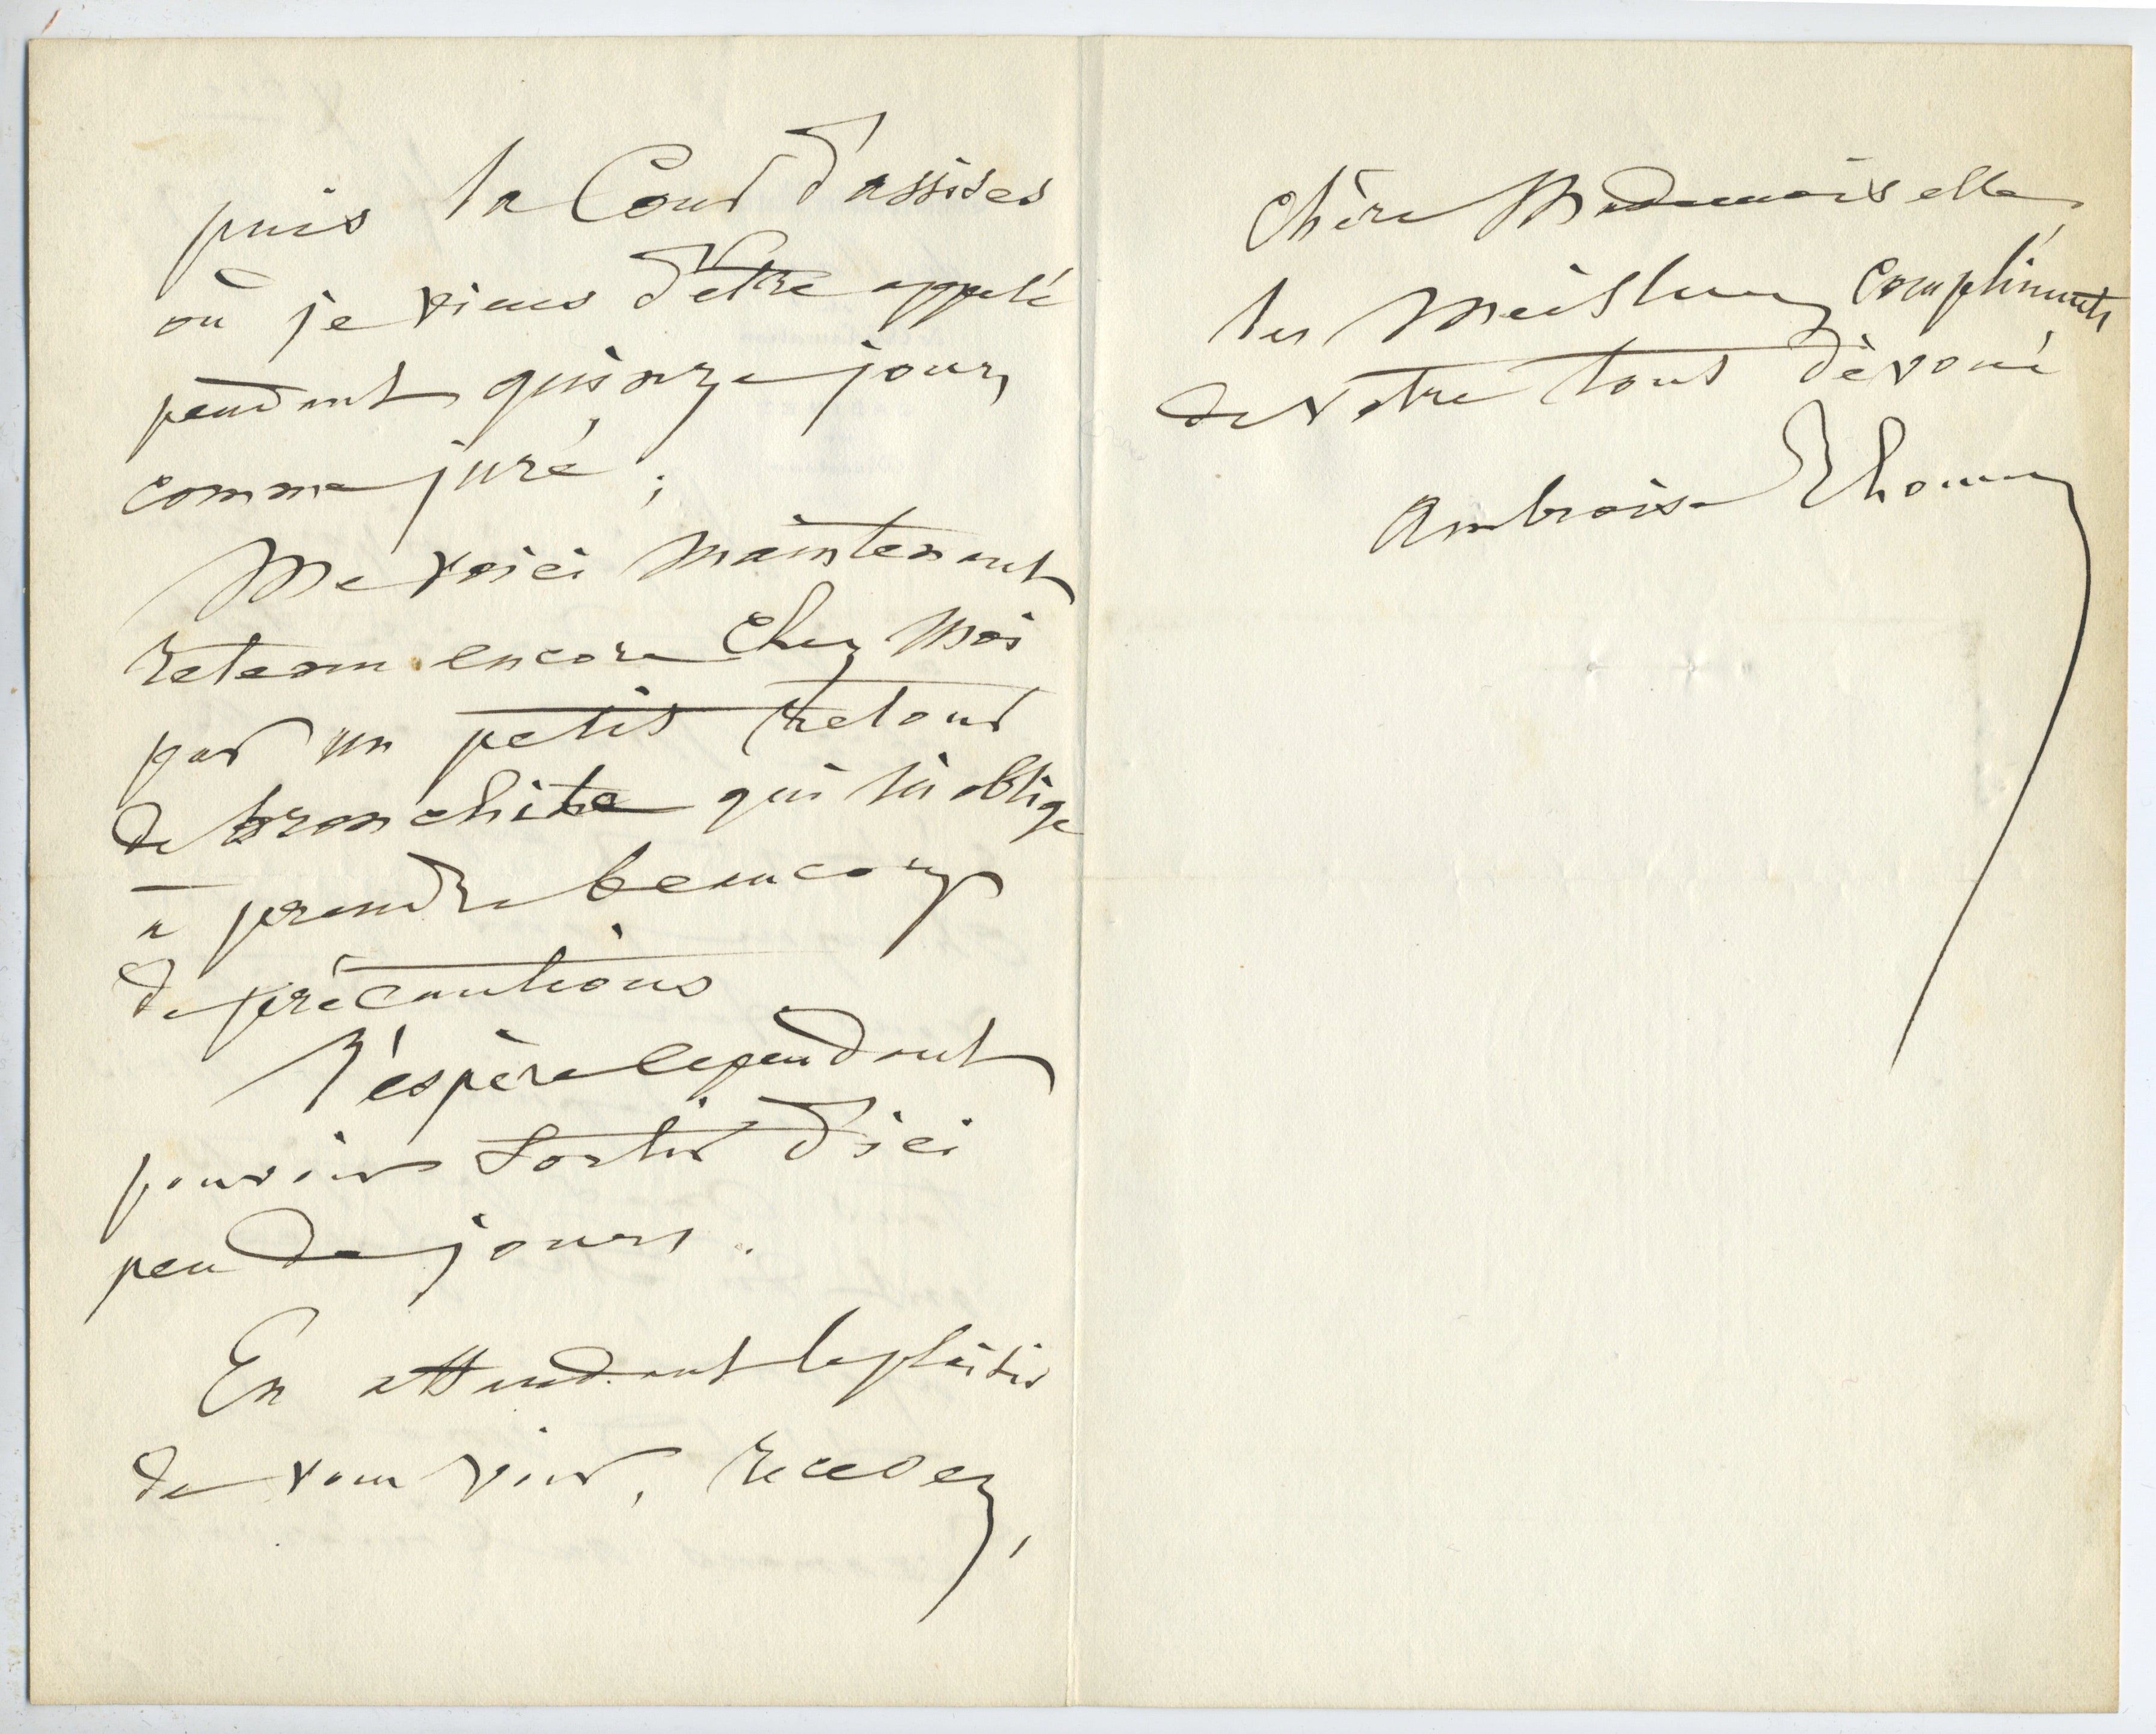 puis la Cour d'assises
où je viens d'être appelé
pendant quinze jours,
comme juré ;
Me voici maintenant
retenu encore chez moi
par un petit retour
de bronchite qui m'oblige
à prendre beaucoup
de précautions
J'espère cependant
pouvoir sortir d'ici
peu de jours.
En attendant le plaisir
de vous voir, recevez,
Chère Mademoiselle,
les meilleurs compliments
de votre tout dévoué
Ambroise Thomas